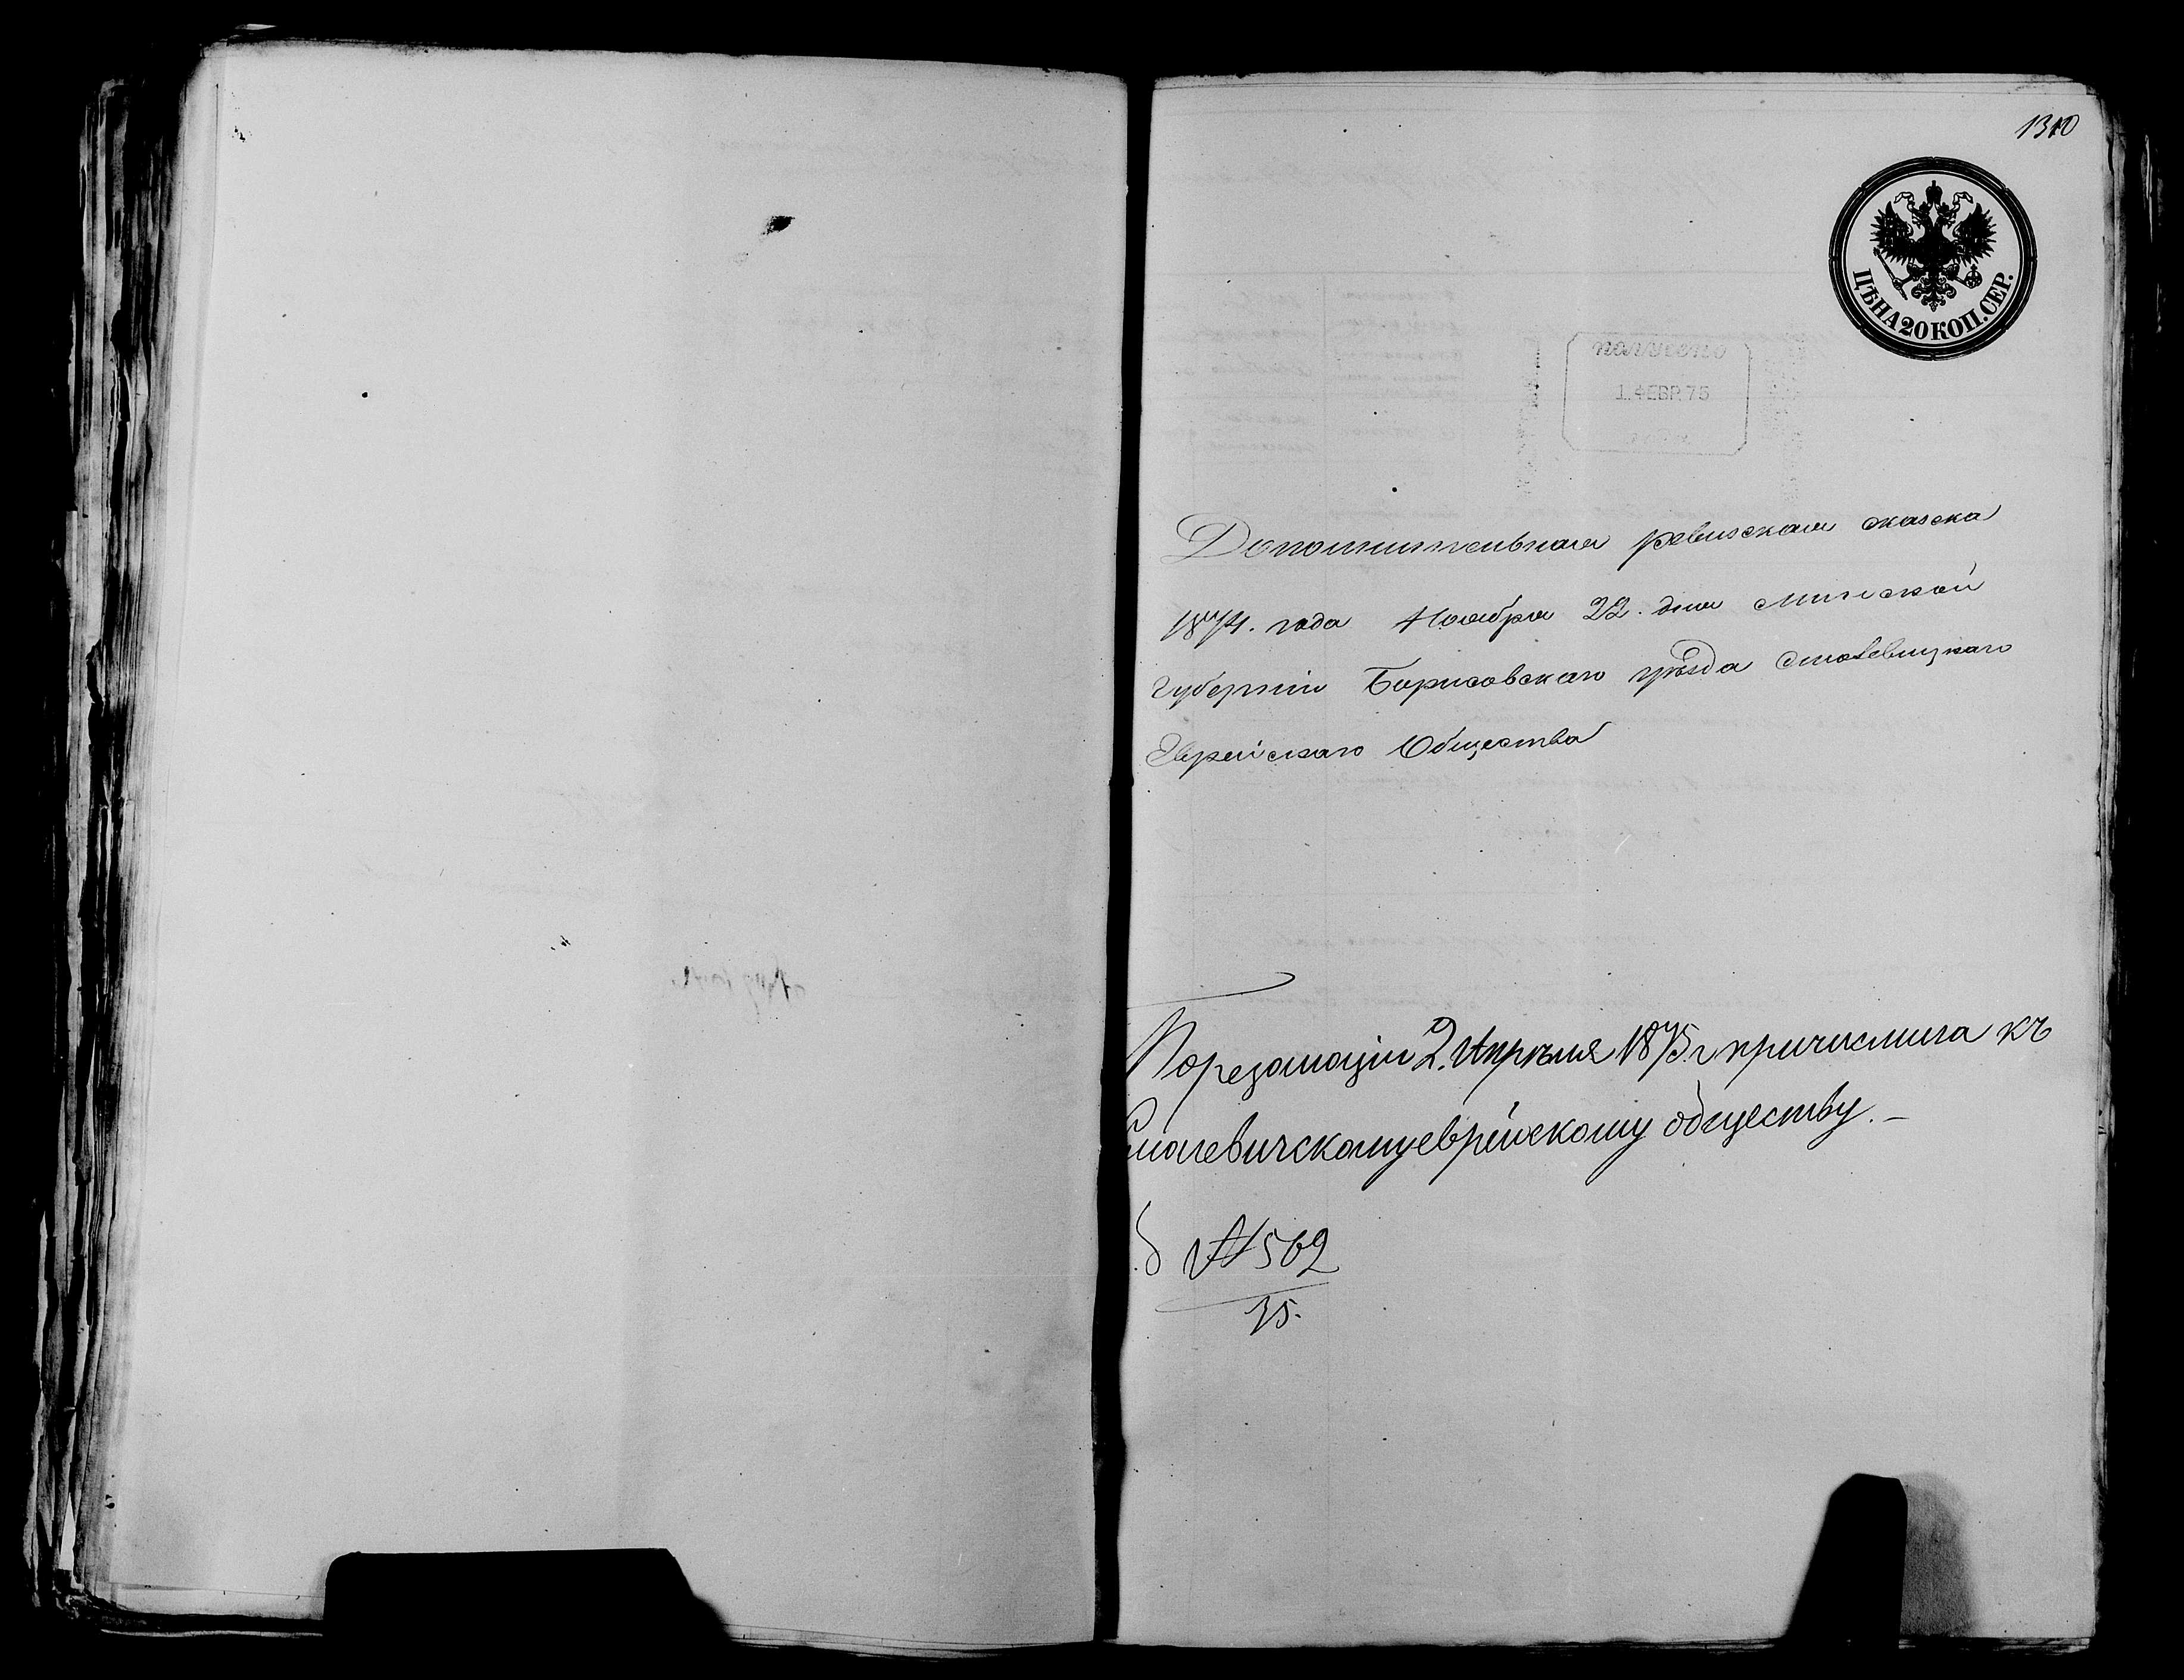 1310
ЦѢНА 20 КОП. СЕР.
получено
1. ФЕВР. 75
Дополнительная ревизская сказка
1874. года Ноября 22. дня Минской
губернии Борисовскаго уѣзда Смолевицкаго
Еврейскаго Общества
По резолюціи 2. Апрѣля 1875. г причислига къ
Смолевичскому еврейскому обществу. –
№ 569
75.